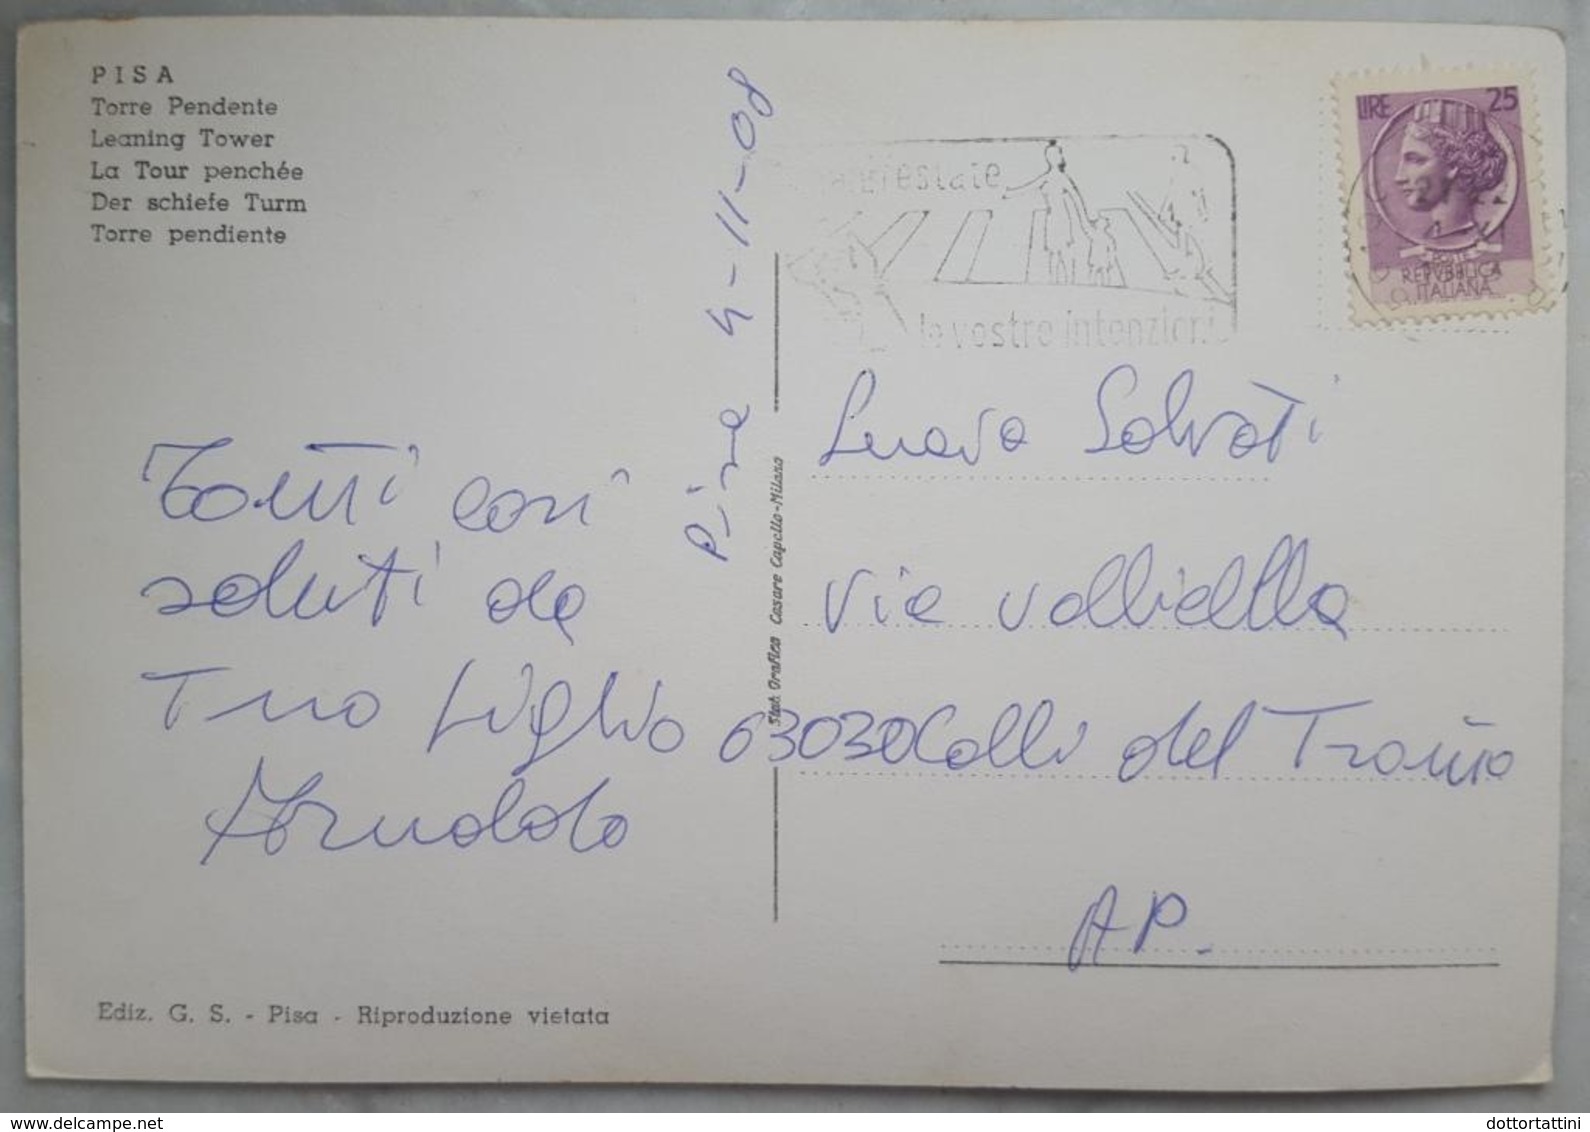 PISA
Torre Pendente
Leaning Tower
La Tour penchée
Der schiefe Turm
Torre pendiente
Pisa 4-11-08
Tanti cari
saluti da
Tuo figlio
Arnaldo
Ediz. G. S. - Pisa - Riproduzione vietata
Stab. Grafico Cesare Capello-Milano
le vostre intenzioni
LIRE 25
POSTE
REPVBBLICA
ITALIANA
Salvati
Via
63030 Colli del Tronto
AP.
www.delcampe.net
dottortattini